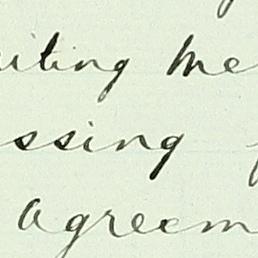 iting me
ssing
agreem